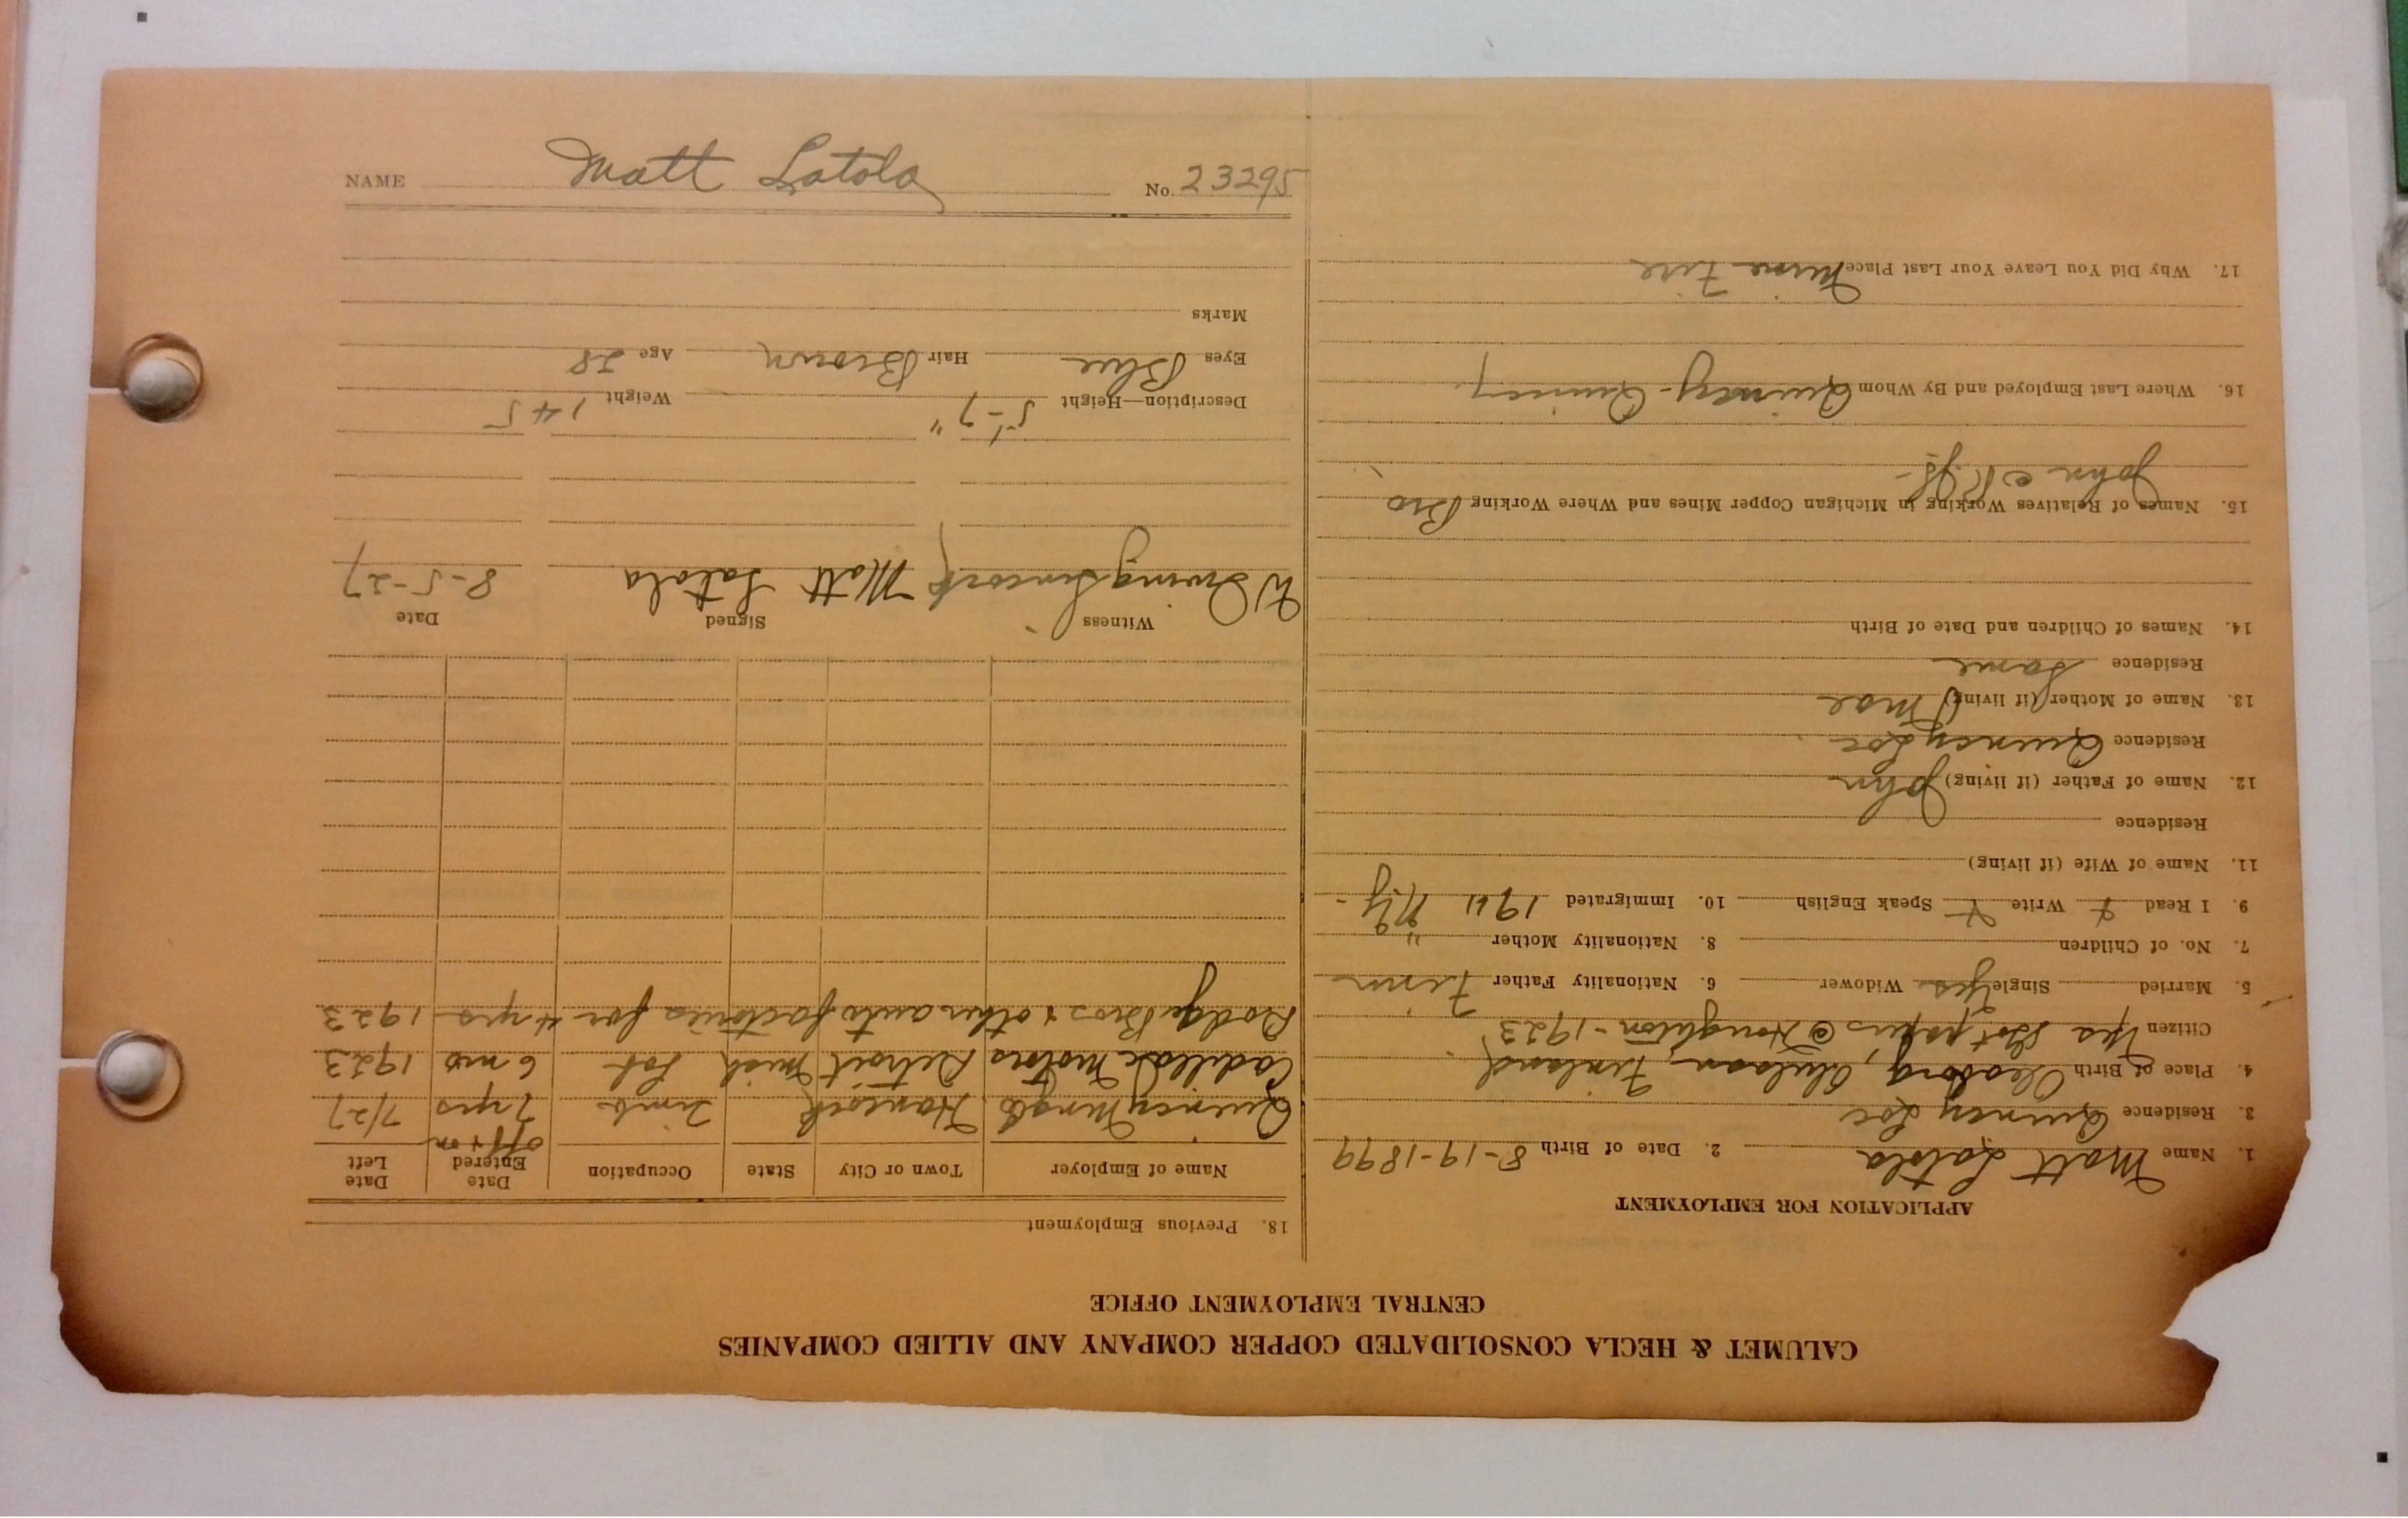 CALUMET & HECLA CONSOLIDATED COPPER COMPANY AND ALLIED COMPANIES
CENTRAL EMPLOYMENT OFFICE
APPLICATION FOR EMPLOYMENT
1. Name Matt Latola 2. Date of Birth 8-19-1899
3. Residence Quincy Loc
4. Place of Birth Oleaborg, Finland
Citizen Yes Got papers @ Houghton - 1923
5. Married Single Yes Widower 6. Nationality Father Finn
7. No. of Children 8. Nationality Mother "
9. I Read + Write + Speak English 10. Immigrated 1911 N.Y-
11. Name of Wife (if living)
Residence
12. Name of Father (if living) John
Residence Quincy Loc
13. Name of Mother (if living)
Residence Same
14. Names of Children and Date of Birth
15. Names of Relatives Working in Michigan Copper Mines and Where Working Bro
John
16. Where Last Employed and By Whom Quincy - Quincy
17. Why Did You Leave Your Last Place Mine Fire
18. Previous Employment
Name of Employer Town or City State Occupation Date Entered Date Left
Quincy Hancock Timb off + on 7 yrs 7/27
Cadillac Motors Detroit Mich Lab 6 mo 1923
Dodge Bros + other auto factories for 4 yrs - 1923
Witness Signed Date
W Irving Matt Latola 8-5-27
Description—Height 5'-7" Weight 145
Eyes Blue Hair Brown Age 28
Marks
NAME Matt Latola No. 23295